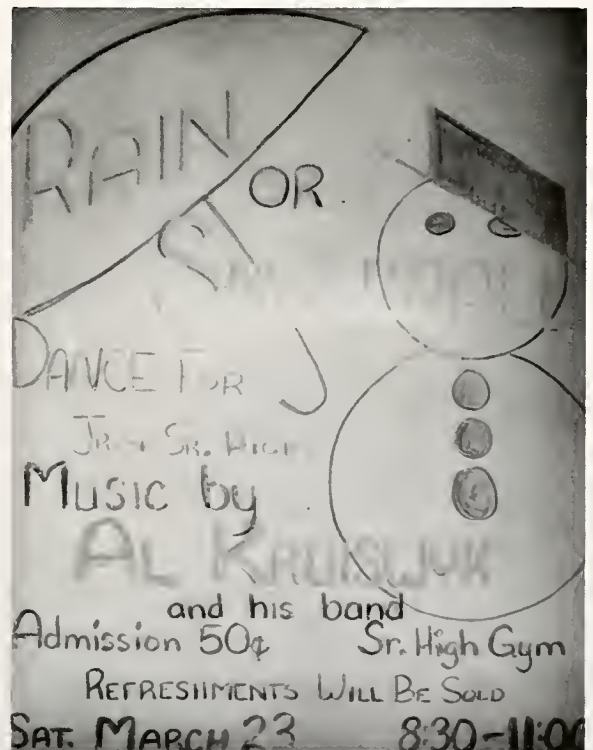 RAIN
OR
DANCE FOR
JR. & SR. HIGH
Music by
AL KRUISWYK
and his band
Admission 50¢ Sr. High Gym
REFRESHMENTS WILL BE SOLD
SAT. MARCH 23 8:30-11:00